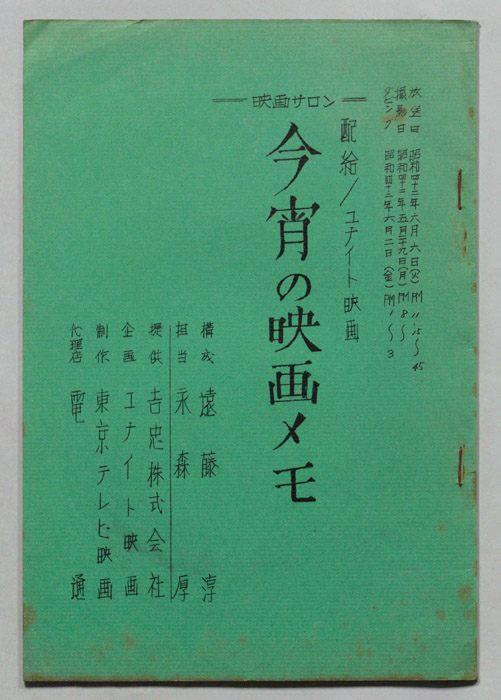 放送日 昭和四十二年六月六日(火)PM 11.15〜45
撮影日 昭和四十二年五月二十九日(月)PM 8〜
ダビング 昭和四十二年六月二日(金)PM 1〜3
映画サロン
配給/ユナイト映画
今宵の映画メモ
構成 遠藤 淳
担当 永森 厚
提供 吉忠株式会社
企画 ユナイト映画
制作 東京テレビ映画
代理店 電通